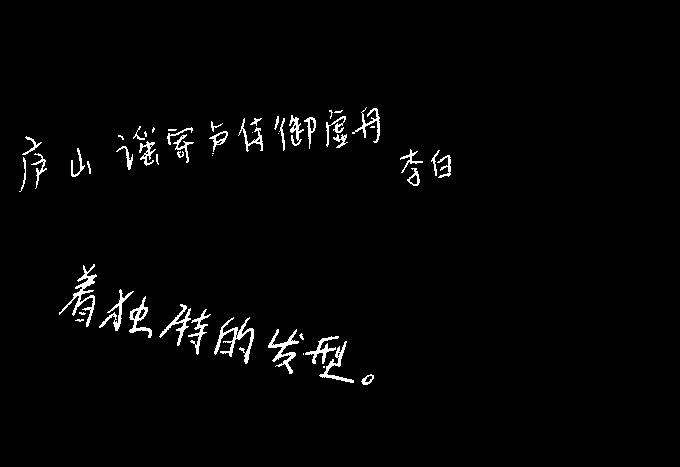 庐山谣寄卢侍御虚舟 李白
着独特的发型。